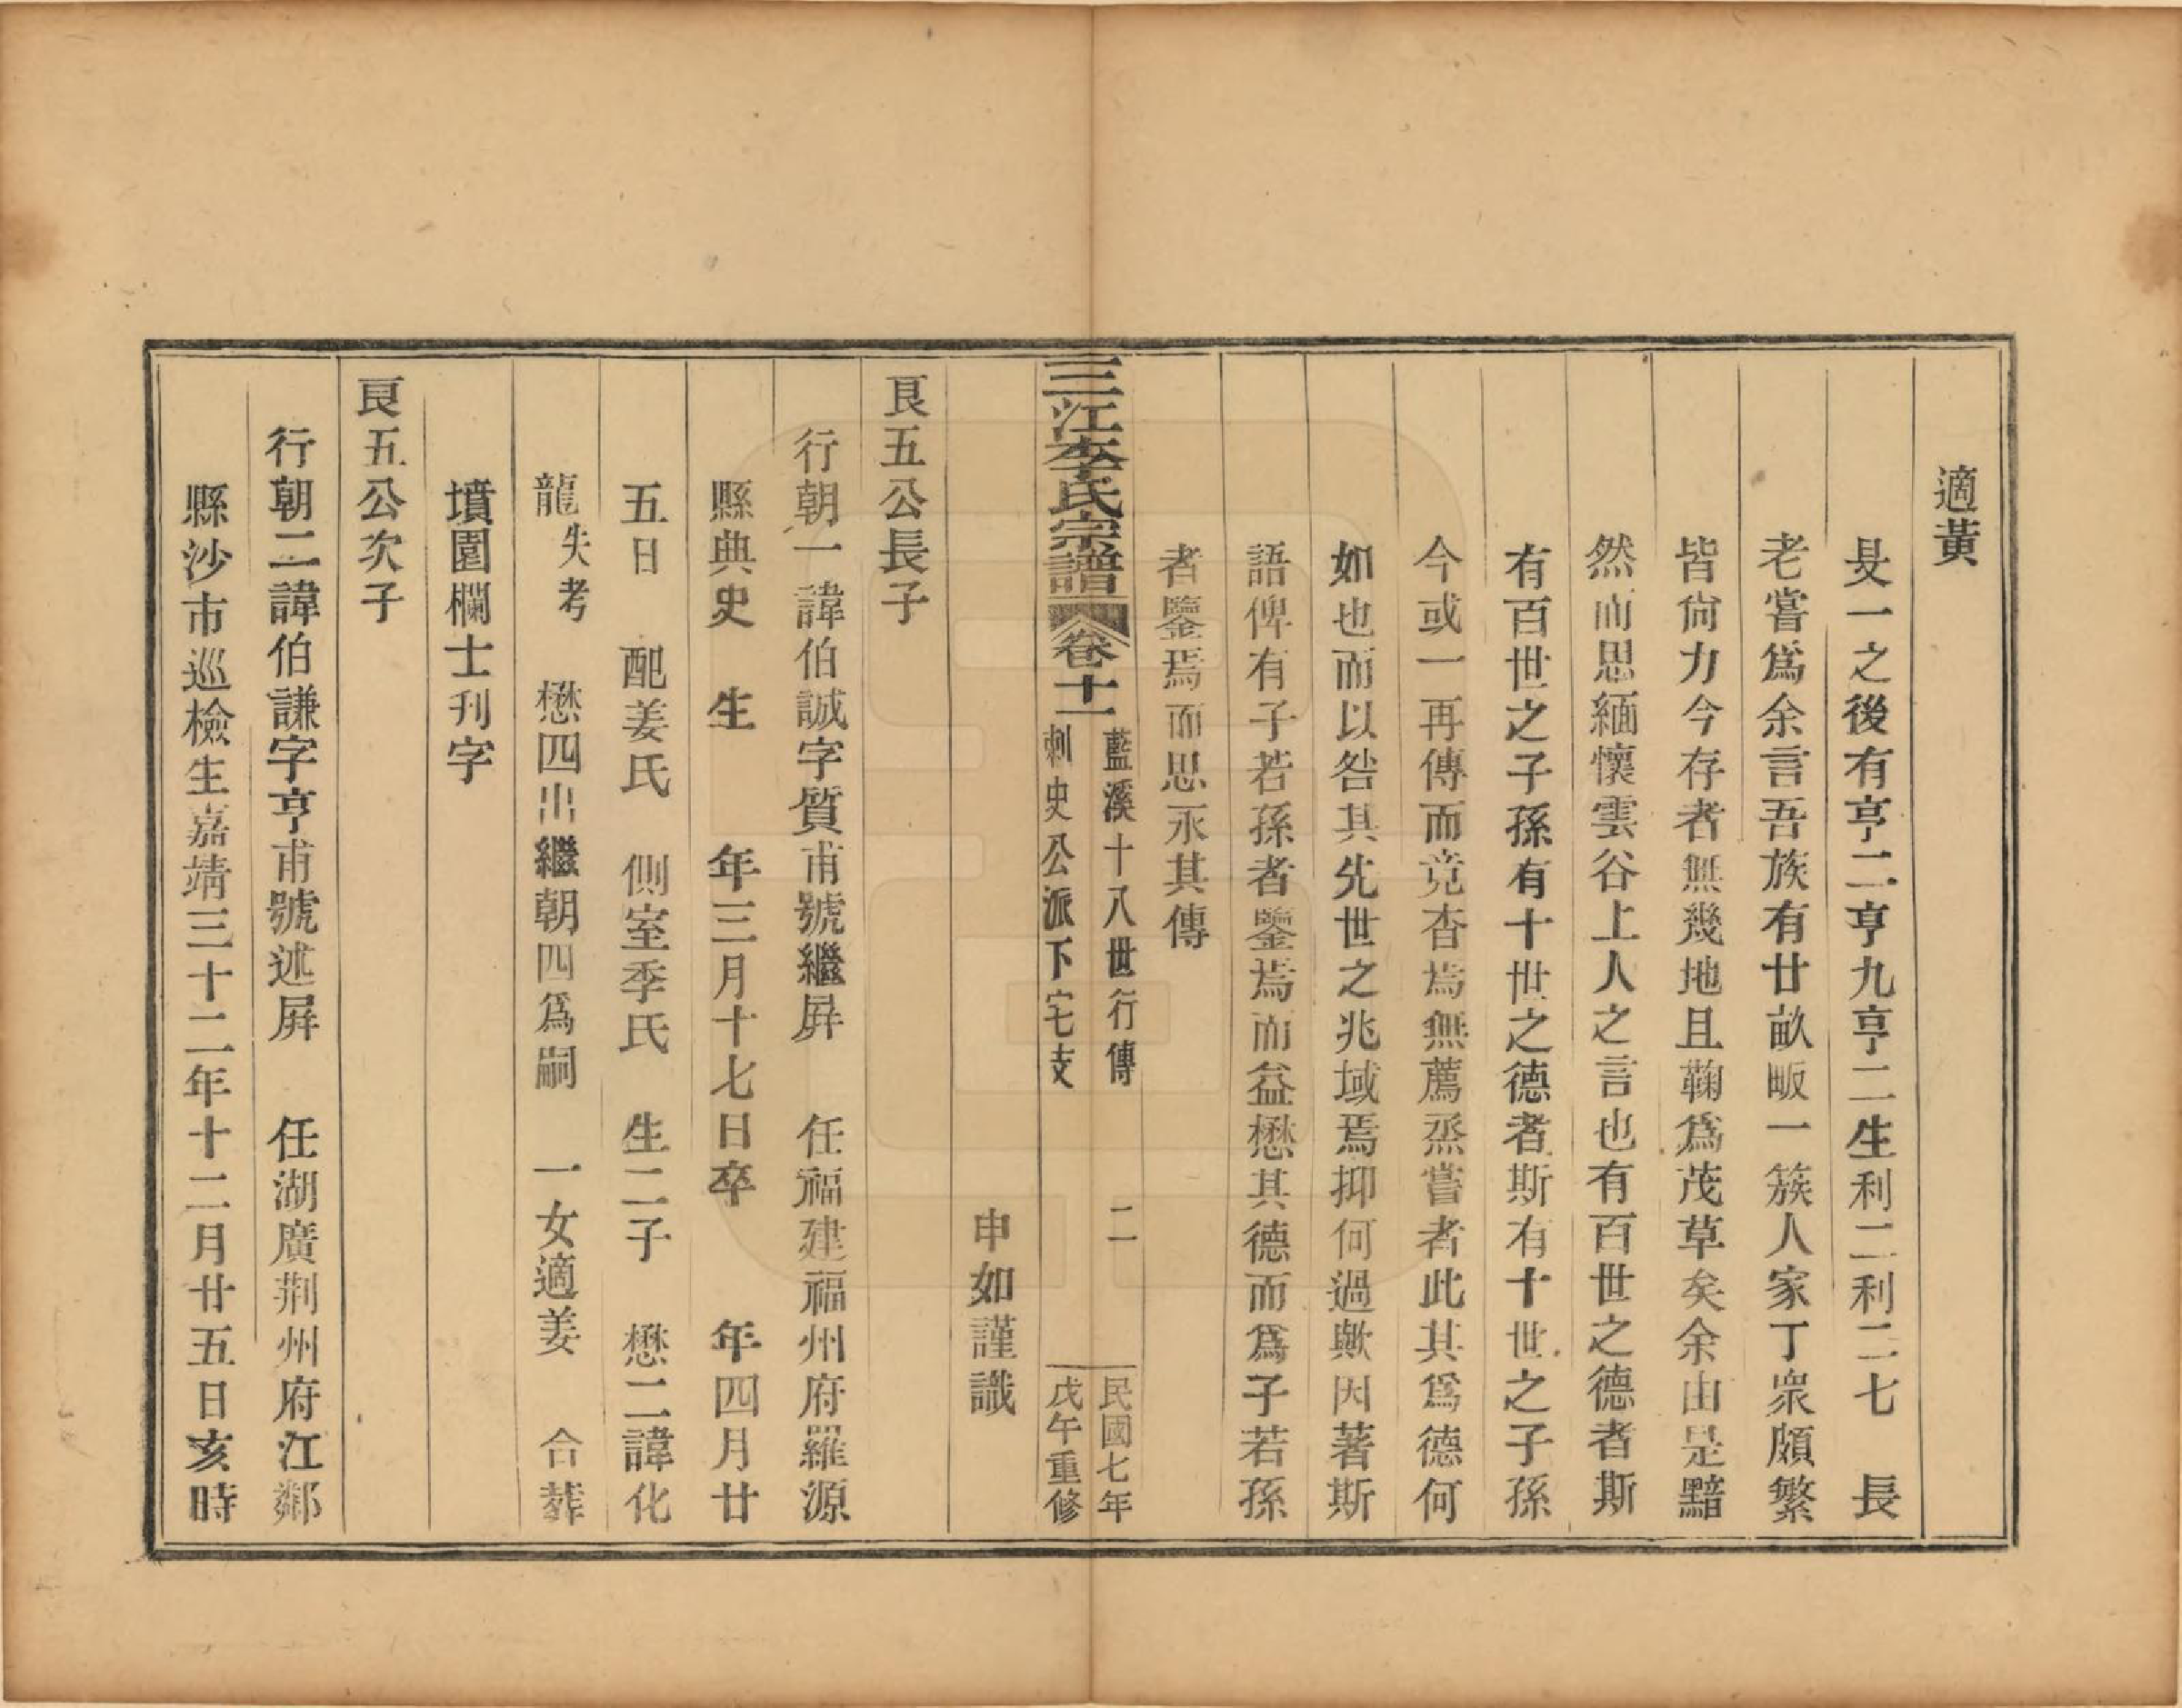 適黃
旻一之後有亨二亨九亨二生利二利二七　長
老嘗爲余言吾族有廿畝畈一簇人家丁衆頗繁
皆尙力今存者無幾地且鞠爲茂草矣余由是黯
然而思緬懷雲谷上人之言也有百世之德者斯
有百世之子孫有十世之德者斯有十世之子孫
今或一再傳而竟杳焉無薦烝嘗者此其爲德何
如也而以咎其先世之兆域焉抑何過歟因著斯
語俾有子若孫者鑒焉而益懋其德而爲子若孫
者鑒焉而思永其傳
三江李氏宗譜 卷十一 藍溪十八世行傳 刺史公派下宅支 二 民國七年 戊午重修
申如謹識
艮五公長子
行朝一諱伯誠字質甫號繼屛　任福建福州府羅源
縣典史　生　年三月十七日卒　年四月廿
五日　配姜氏　側室季氏　生二子　懋二諱化
龍失考　懋四出繼朝四爲嗣　一女適姜　合葬
墳園欄士刋字
艮五公次子
行朝二諱伯謙字亨甫號述屛　任湖廣荆州府江鄰
縣沙市巡檢生嘉靖三十二年十二月廿五日亥時